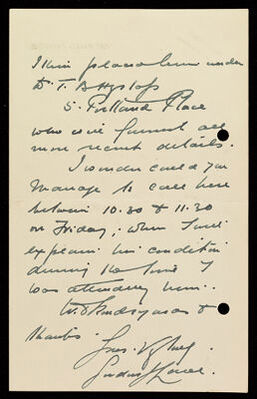 I have placed him under
Dr. T. B. Hyslop
5. Portland Place
who will furnish all
more recent details.
I wonder could you
manage to call here
between 10.30 & 11.30
on Friday, when I will
explain his condition
during the time I
was attending him.
With kind regards &
thanks.